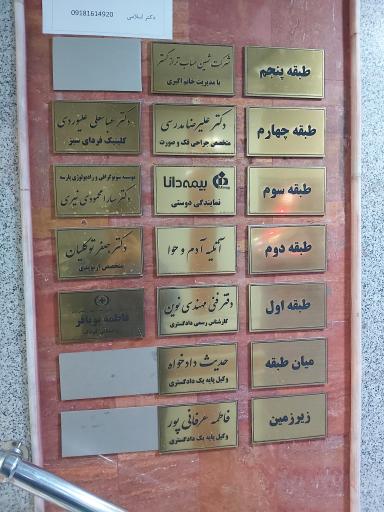 دکتر اسلامی 09181614920
طبقه پنجم
شرکت ثمین حساب تراز گستر
با مدیریت خانم اکبری
طبقه چهارم
دکتر علیرضا مدرسی
متخصص جراحی فک و صورت
دکتر عباسعلی علیوردی
کلینیک فردای سبز
طبقه سوم
بیمه دانا
نمایندگی دوستی
موسسه سونوگرافی و رادیولوژی پارسه
دکتر سارا محمودی نیری
طبقه دوم
آتلیه آدم و حوا
دکتر جعفر توکلیان
متخصص ارتوپدی
طبقه اول
دفتر فنی مهندسی نوین
کارشناس رسمی دادگستری
فاطمه نوباقر
میان طبقه
حدیث دادخواه
وکیل پایه یک دادگستری
زیرزمین
فاطمه عرفانی پور
وکیل پایه یک دادگستری